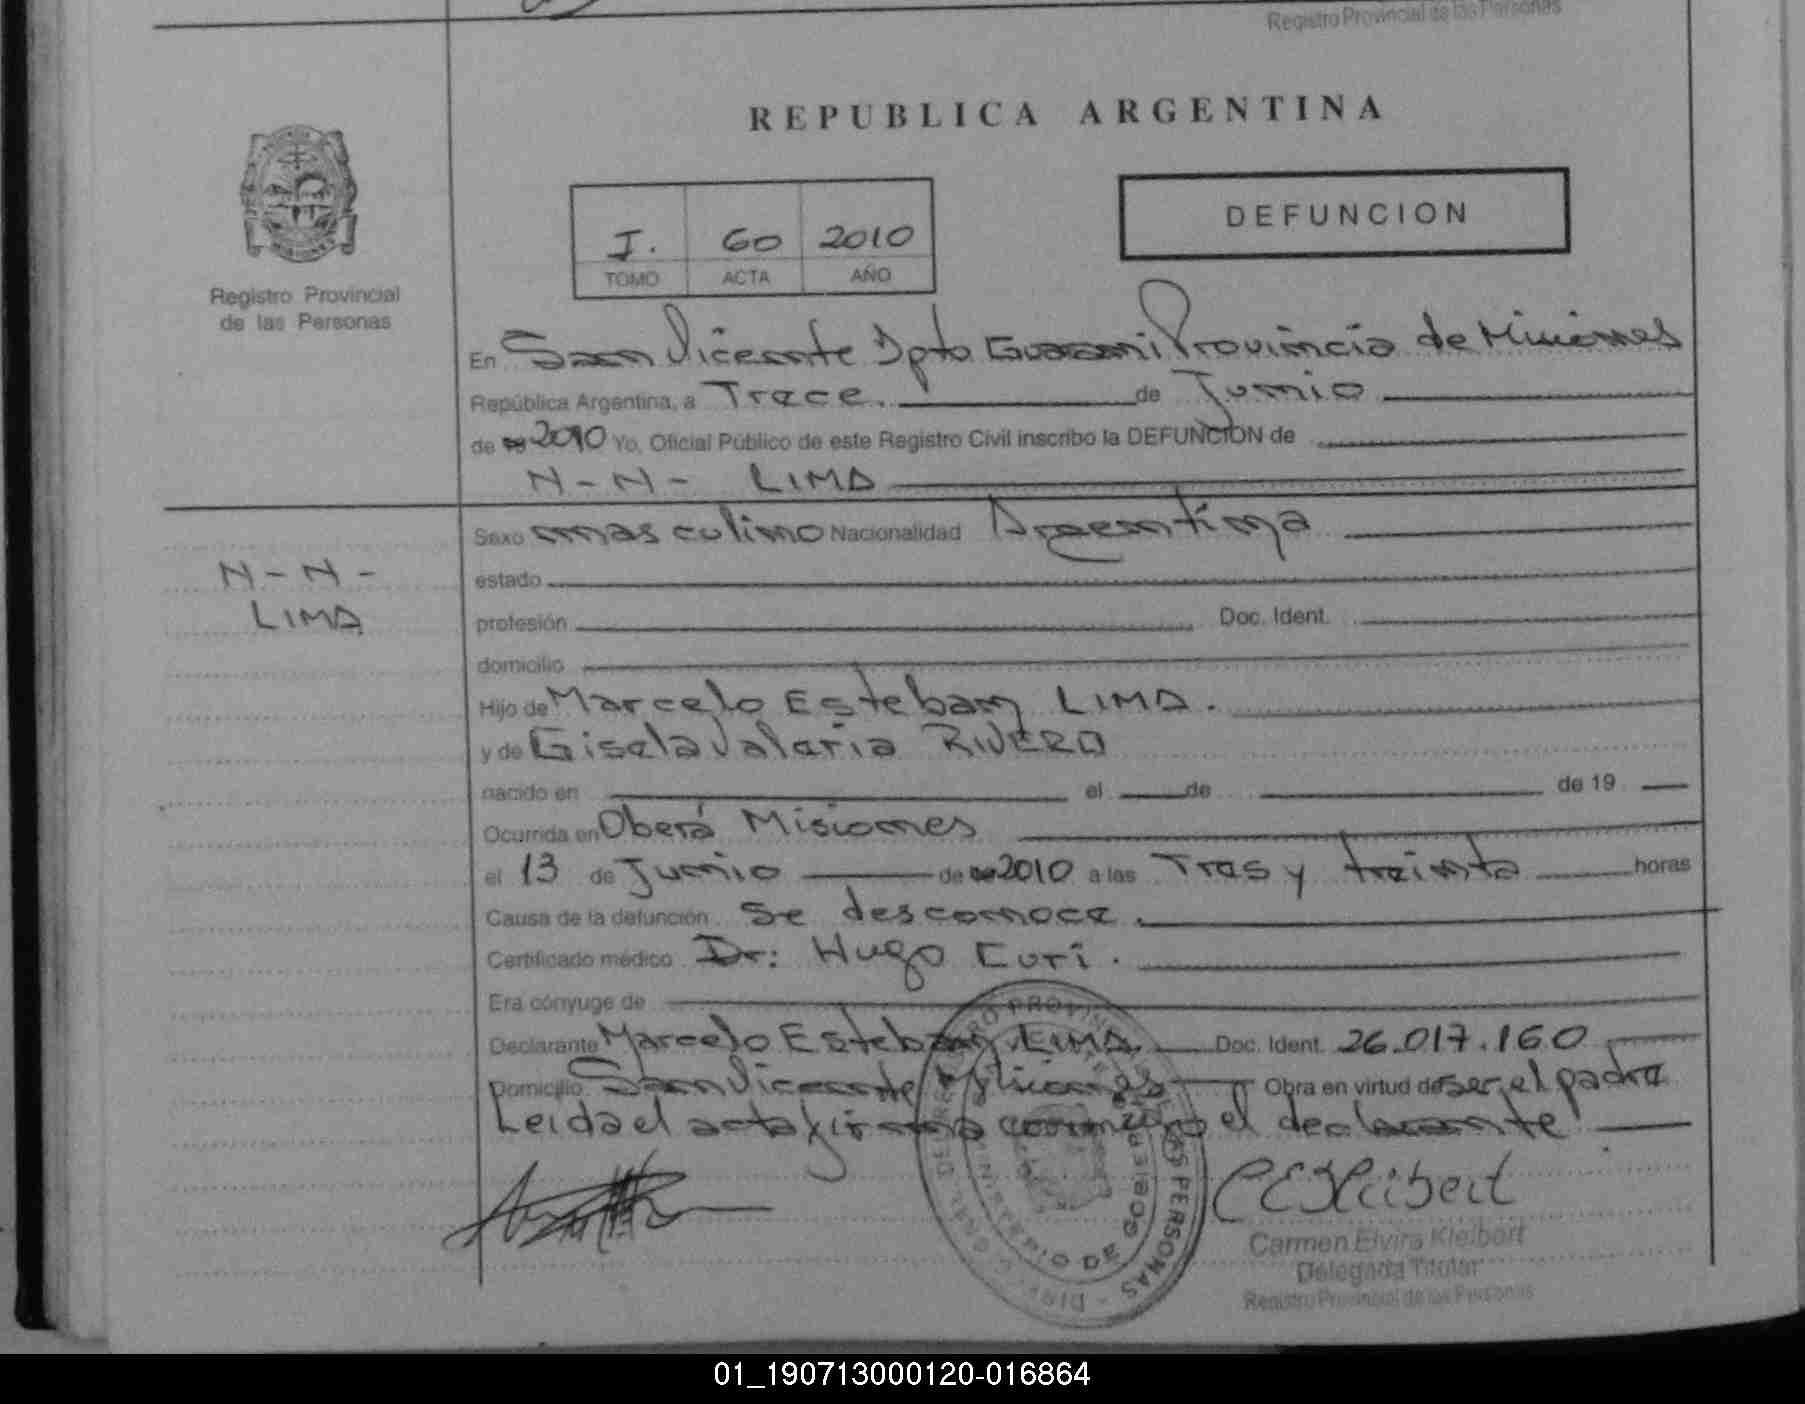 Registro Provincial de las Personas
REPUBLICA ARGENTINA
DEFUNCION
I. 60 2010
TOMO ACTA AÑO
Registro Provincial
de las Personas
En San Vicente Dpto Guarani Provincia de Misiones
República Argentina, a Trece. de Junio
de 2010 Yo, Oficial Público de este Registro Civil inscribo la DEFUNCION de
N-N- LIMA
Sexo masculino Nacionalidad Argentina
N-N-
LIMA
estado
profesión Doc. Ident.
domicilio
Hijo de Marcelo Esteban LIMA.
y de Gisela Valeria RIVERO
nacido en el de de 19
Ocurrida en Oberá Misiones
el 13 de Junio de 2010 a las Tres y treinta horas
Causa de la defunción Se desconoce.
Certificado médico Dr: Hugo Curi.
Era cónyuge de
Declarante Marcelo Esteban LIMA. Doc. Ident. 26.017.160
Domicilio San Vicente Misiones Obra en virtud de ser el padre
Leida el acta firma conmigo el declarante
CEKleibert
Carmen Elvira Kleibert
Delegada Titular
Registro Provincial de las Personas
01_190713000120-016864